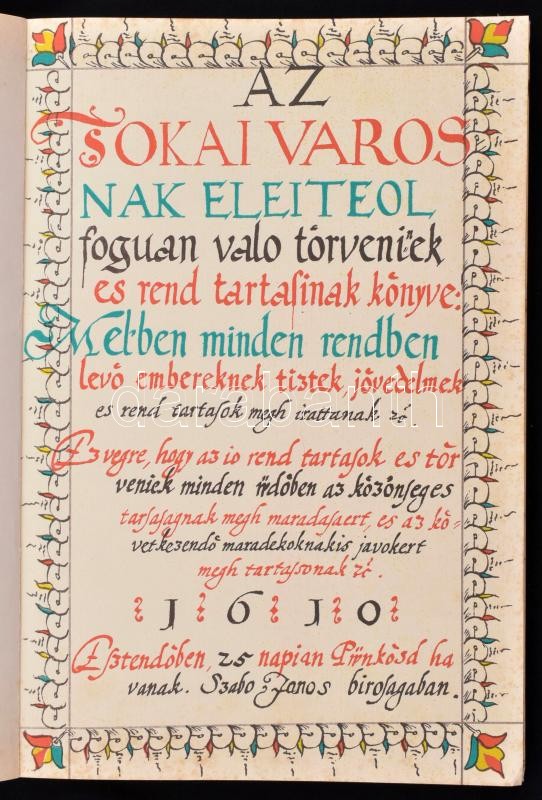 AZ
TOKAI VAROS
NAK ELEITEOL
foguan valo törveniek
es rend tartaſinak könyve:
Mel·ben minden rendben
levö embereknek tiztek, jövedelmek
es rend tartaſok megh irattanak zć
Ez vegre, hogy az io rend tartaſok es tör
veniek minden üdöben az közönſeges
tarſaſagnak megh maradaſaert, es az kö-
vetkezendö maradekoknakis javokert
megh tartaſſonak zć.
1610
Eſztendöben, 25 napian Pünköſd ha
vanak. Szabo Janos biroſagaban.
darabanth